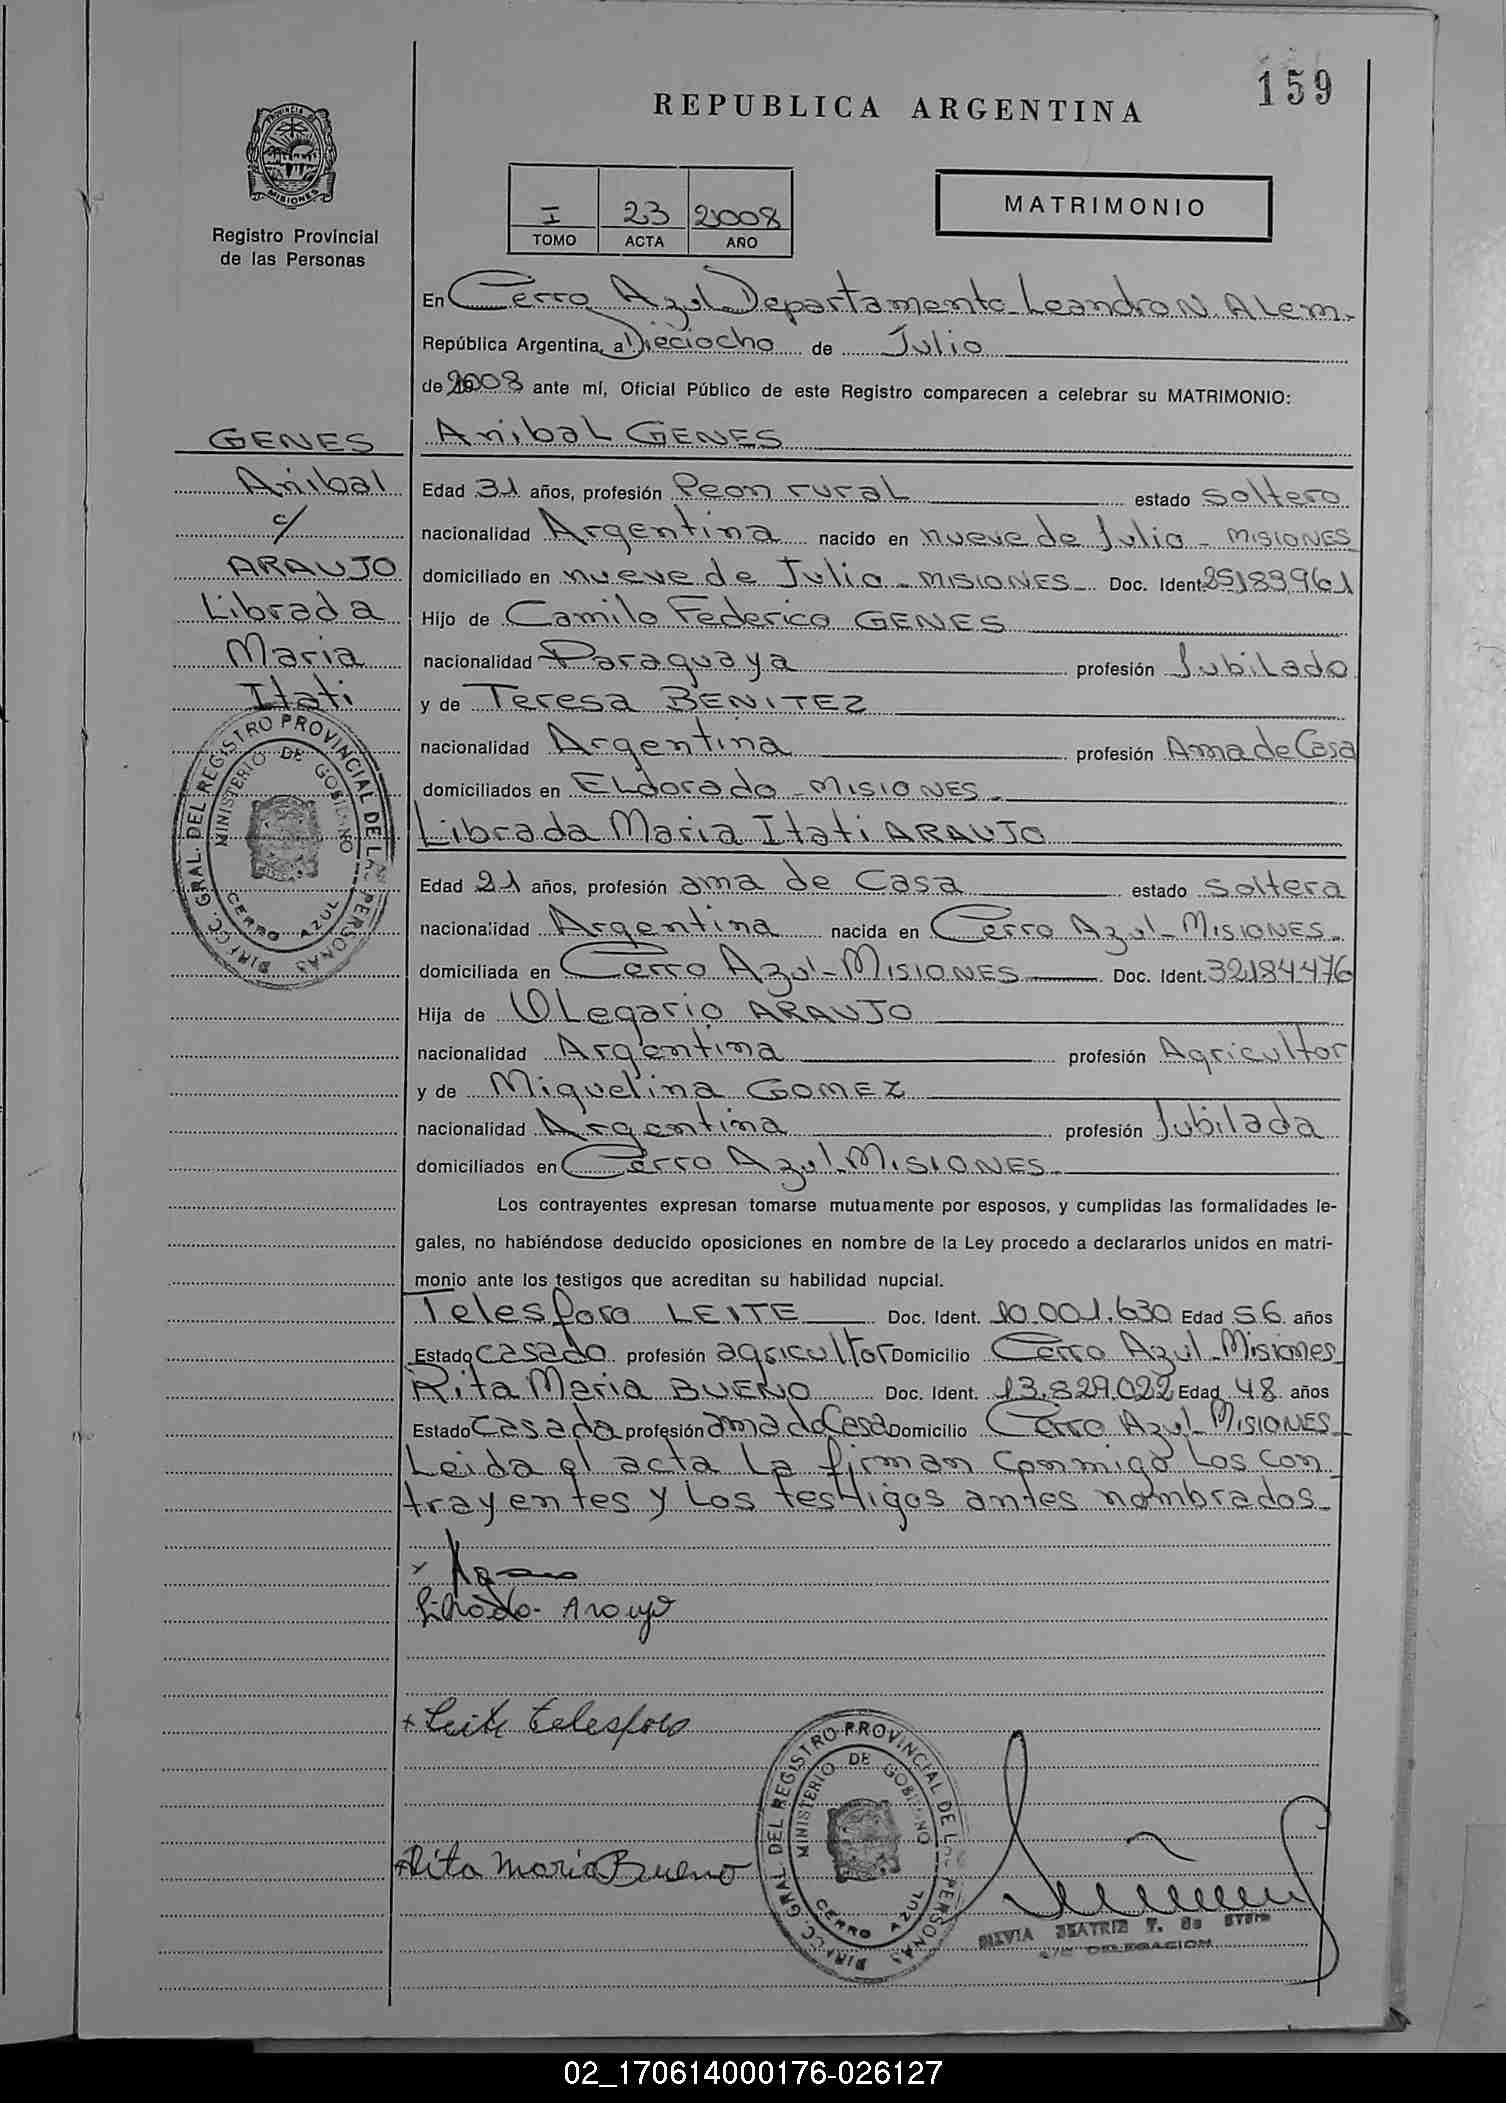 159
REPUBLICA ARGENTINA
PROVINCIA DE
MISIONES
Registro Provincial
de las Personas
I 23 2008
TOMO ACTA AÑO
MATRIMONIO
En Cerro Azul Departamento Leandro N. Alem.
República Argentina, a Dieciocho de Julio
de 2008 ante mí, Oficial Público de este Registro comparecen a celebrar su MATRIMONIO:
GENES
Anibal
c/
ARAUJO
Librada
Maria
Itati
Anibal GENES
Edad 31 años, profesión Peon rural estado soltero
nacionalidad Argentina nacido en nueve de Julio - MISIONES
domiciliado en nueve de Julio - MISIONES - Doc. Ident. 25.183.961
Hijo de Camilo Federico GENES
nacionalidad Paraguaya profesión Jubilado
y de Teresa BENITEZ
nacionalidad Argentina profesión Ama de Casa
domiciliados en ELdorado - MISIONES -
Librada Maria Itati ARAUJO
Edad 21 años, profesión ama de Casa estado soltera
nacionalidad Argentina nacida en Cerro Azul - MISIONES -
domiciliada en Cerro Azul - MISIONES Doc. Ident. 32.184.476
Hija de OLegario ARAUJO
nacionalidad Argentina profesión Agricultor
y de Miguelina GOMEZ
nacionalidad Argentina profesión Jubilada
domiciliados en Cerro Azul - MISIONES -
Los contrayentes expresan tomarse mutuamente por esposos, y cumplidas las formalidades le-
gales, no habiéndose deducido oposiciones en nombre de la Ley procedo a declararlos unidos en matri-
monio ante los testigos que acreditan su habilidad nupcial.
Telesforo LEITE Doc. Ident. 10.001.630 Edad 56 años
Estado casado profesión agricultor Domicilio Cerro Azul - Misiones
Rita Maria BUENO Doc. Ident. 13.829.022 Edad 48 años
Estado Casada profesión ama de Casa Domicilio Cerro Azul - MISIONES -
Leida el acta la firman conmigo Los con
trayentes y Los testigos antes nombrados -
DIRECC. GRAL. DEL REGISTRO PROVINCIAL DE LAS PERSONAS
MINISTERIO DE GOBIERNO
CERRO AZUL
Librada Araujo
x Leite Telesforo
x Rita Maria Bueno
DIRECC. GRAL. DEL REGISTRO PROVINCIAL DE LAS PERSONAS
MINISTERIO DE GOBIERNO
CERRO AZUL
SILVIA BEATRIZ
DELEGACION
02_170614000176-026127